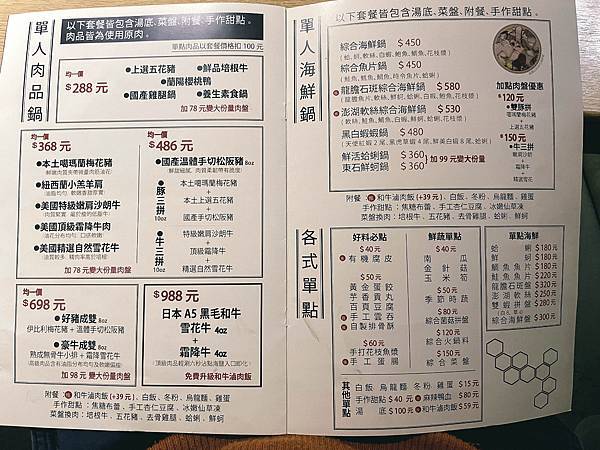 單人肉品鍋
以下套餐皆包含湯底、菜盤、附餐、手作甜點。
肉品皆為使用原肉。
單點肉品以套餐價格扣 100 元
均一價
$288 元
●上選五花豬 ●鮮品培根牛
●蘭陽櫻桃鴨
●國產雞腿鍋 ●養生素食鍋
加 78 元變大份量肉盤
均一價
$368 元
●本土噶瑪蘭梅花豬
●紐西蘭小羔羊肩
●美國特級嫩肩沙朗牛
●美國頂級霜降牛肉
●美國精選自然雪花牛
加 78 元變大份量肉盤
均一價
$486 元
●國產溫體手切松阪豬 8oz
●豚三拼 10oz
本土噶瑪蘭梅花豬
+
本土上選五花豬
+
國產手切松阪豬
●牛三拼 10oz
特級嫩肩沙朗牛
+
頂級霜降牛
+
精選自然雪花牛
均一價
$698 元
●好豬成雙 8oz
伊比利梅花豬 + 溫體手切松阪豬
●豪牛成雙 8oz
熟成無骨牛小排 + 霜降雪花牛
加 98 元 變大份量肉盤
$988 元
日本 A5 黑毛和牛
雪花牛 4oz
+
霜降牛 4oz
免費升級和牛滷肉飯
附餐 和牛滷肉飯(+39 元)、白飯、冬粉、烏龍麵、雞蛋
手作甜點:焦糖布蕾、手工杏仁豆腐、冰嫩仙草凍
菜盤換肉:培根牛、五花豬、去骨雞腿、蛤蜊、鮮蚵
單人海鮮鍋
以下套餐皆包含湯底、菜盤、附餐、手作甜點。
綜合海鮮鍋 $ 450
(蛤、蚵、軟絲、白蝦、鮑魚、鯛魚、花枝漿)
綜合魚片鍋 $ 450
龍膽石斑綜合海鮮鍋 $ 580
澎湖軟絲綜合海鮮鍋 $ 530
黑白蝦蝦鍋 $ 480
鮮活蛤蜊鍋 $ 360
東石鮮蚵鍋 $ 360
加 99 元變大份量
加點肉盤優惠
$120 元
●雙豚拼
噶瑪蘭梅花豬
+
上選五花豬
$150 元
●牛三拼
嫩肩沙朗
+
霜降牛
+
精選雪花
附餐 和牛滷肉飯(+39 元)、白飯、冬粉、烏龍麵、雞蛋
手作甜點:焦糖布蕾、手工杏仁豆腐、冰嫩仙草凍
菜盤換肉:培根牛、五花豬、去骨雞腿、蛤蜊、鮮蚵
各式單點
好料必點
$40 元
有機腐皮
$50 元
黃金蛋餃
芋香貢丸
百頁豆腐
手工雲吞
自製排骨酥
$60 元
手打花枝魚漿
手工蛋腸
鮮蔬單點
$40 元
南瓜
金針菇
玉米筍
$50 元
季節時蔬
$80 元
綜合菌菇拼盤
$120 元
綜合火鍋料
$150 元
綜合菜盤
單點海鮮
蛤蜊 $180 元
鮮蚵 $180 元
鯛魚魚片 $180 元
鮭魚魚片 $220 元
龍膽石斑 $320 元
澎湖軟絲 $250 元
雙蝦拼盤 $280 元
(白6, 草4)
綜合海鮮 $300 元
其他單點
白飯 烏龍麵 冬粉 雞蛋 $15 元
手作甜點 $40 元 麻辣鴨血 $80 元
湯底 $100 元 和牛滷肉飯 $59 元